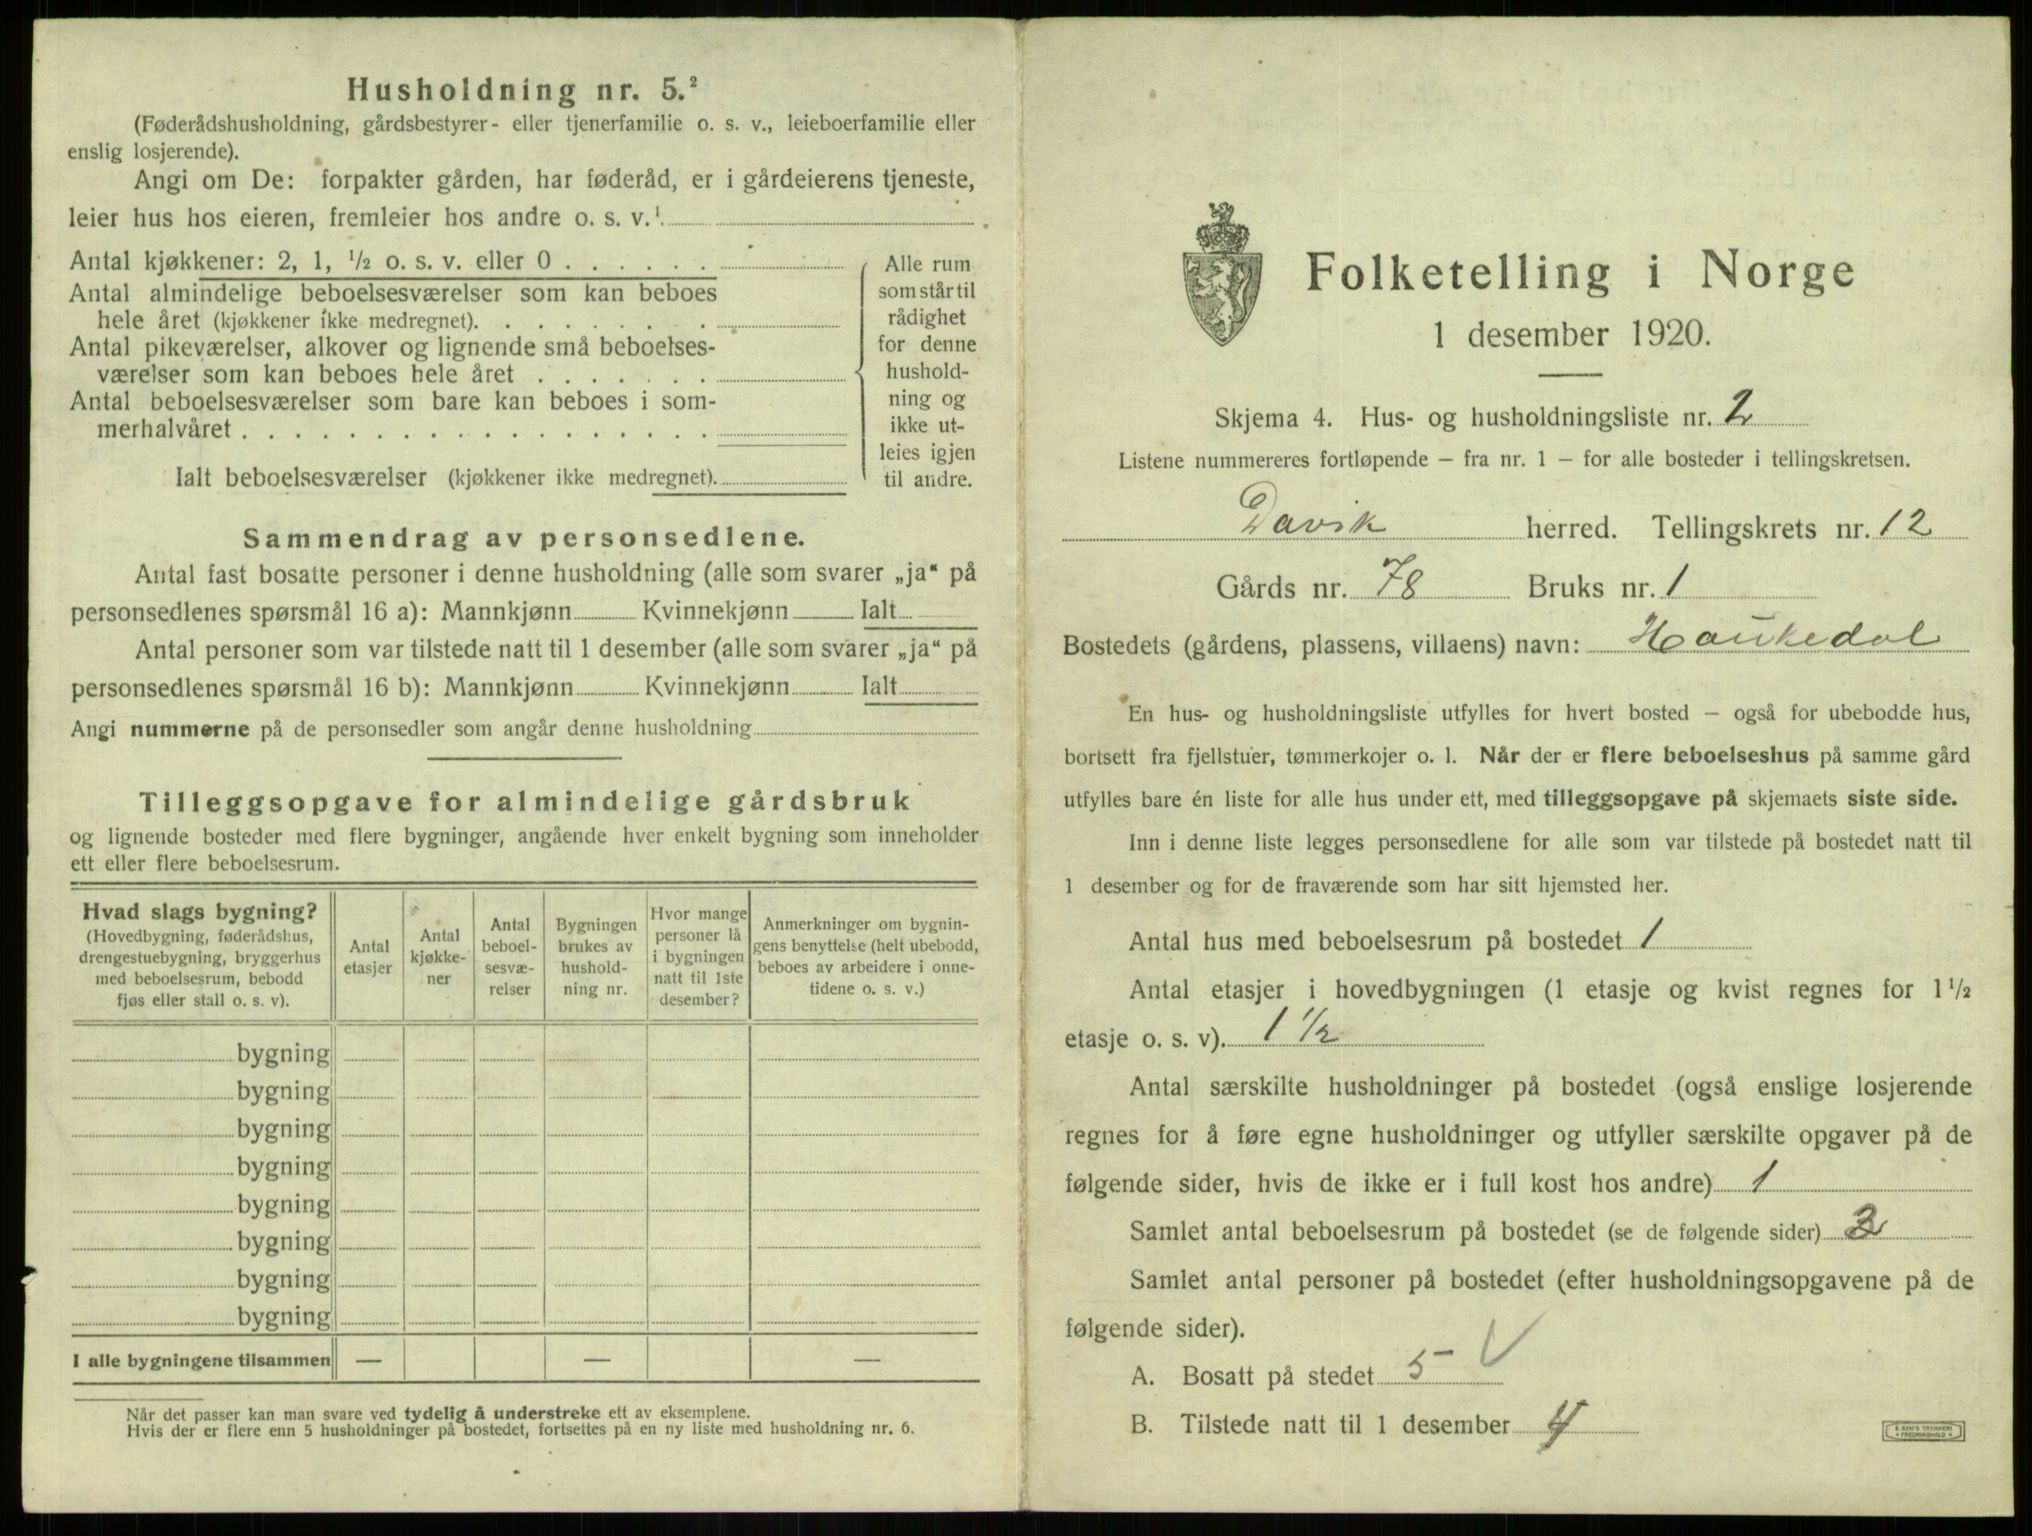 Husholdning nr. 5.²
(Føderådshusholdning, gårdsbestyrer- eller tjenerfamilie o. s. v., leieboerfamilie eller
enslig losjerende).
Angi om De: forpakter gården, har føderåd, er i gårdeierens tjeneste,
leier hus hos eieren, fremleier hos andre o. s. v.¹
Antal kjøkkener: 2, 1, ½ o. s. v. eller 0 . . . . . .
Antal almindelige beboelsesværelser som kan beboes
hele året (kjøkkener ikke medregnet). . . . . . . . .
Antal pikeværelser, alkover og lignende små beboelses-
værelser som kan beboes hele året . . . . . . .
Antal beboelsesværelser som bare kan beboes i som-
merhalvåret . . . . . . . . . . . . . . . . . .
Ialt beboelsesværelser (kjøkkener ikke medregnet).
Alle rum
som står til
rådighet
for denne
hushold-
ning og
ikke ut-
leies igjen
til andre.
Sammendrag av personsedlene.
Antal fast bosatte personer i denne husholdning (alle som svarer „ja“ på
personsedlenes spørsmål 16 a): Mannkjønn Kvinnekjønn Ialt
Antal personer som var tilstede natt til 1 desember (alle som svarer „ja“ på
personsedlenes spørsmål 16 b): Mannkjønn Kvinnekjønn Ialt
Angi nummerne på de personsedler som angår denne husholdning
Tilleggsopgave for almindelige gårdsbruk
og lignende bosteder med flere bygninger, angående hver enkelt bygning som inneholder
ett eller flere beboelsesrum.
Hvad slags bygning?
(Hovedbygning, føderådshus,
drengestuebygning, bryggerhus
med beboelsesrum, bebodd
fjøs eller stall o. s. v).
Antal
etasjer
Antal
kjøkke-
ner
Antal
beboel-
sesvæ-
relser
Bygningen
brukes av
hushold-
ning nr.
Hvor mange
personer lå
i bygningen
natt til 1ste
desember?
Anmerkninger om bygnin-
gens benyttelse (helt ubebodd,
beboes av arbeidere i onne-
tidene o. s. v.)
bygning
bygning
bygning
bygning
bygning
bygning
bygning
bygning
I alle bygningene tilsammen — — —
Når det passer kan man svare ved tydelig å understreke ett av eksemplene.
Hvis der er flere enn 5 husholdninger på bostedet, fortsettes på en ny liste med husholdning nr. 6.
Folketelling i Norge
1 desember 1920.
Skjema 4. Hus- og husholdningsliste nr. 2
Listene nummereres fortløpende — fra nr. 1 — for alle bosteder i tellingskretsen.
Davik herred. Tellingskrets nr. 12
Gårds nr. 78 Bruks nr. 1
Bostedets (gårdens, plassens, villaens) navn: Haukedal
En hus- og husholdningsliste utfylles for hvert bosted — også for ubebodde hus,
bortsett fra fjellstuer, tømmerkojer o. l. Når der er flere beboelseshus på samme gård
utfylles bare én liste for alle hus under ett, med tilleggsopgave på skjemaets siste side.
Inn i denne liste legges personsedlene for alle som var tilstede på bostedet natt til
1 desember og for de fraværende som har sitt hjemsted her.
Antal hus med beboelsesrum på bostedet 1
Antal etasjer i hovedbygningen (1 etasje og kvist regnes for 1½
etasje o. s. v). 1 ½
Antal særskilte husholdninger på bostedet (også enslige losjerende
regnes for å føre egne husholdninger og utfyller særskilte opgaver på de
følgende sider, hvis de ikke er i full kost hos andre) 1
Samlet antal beboelsesrum på bostedet (se de følgende sider)
Samlet antal personer på bostedet (efter husholdningsopgavene på de
følgende sider).
A. Bosatt på stedet 5 V
B. Tilstede natt til 1 desember 4